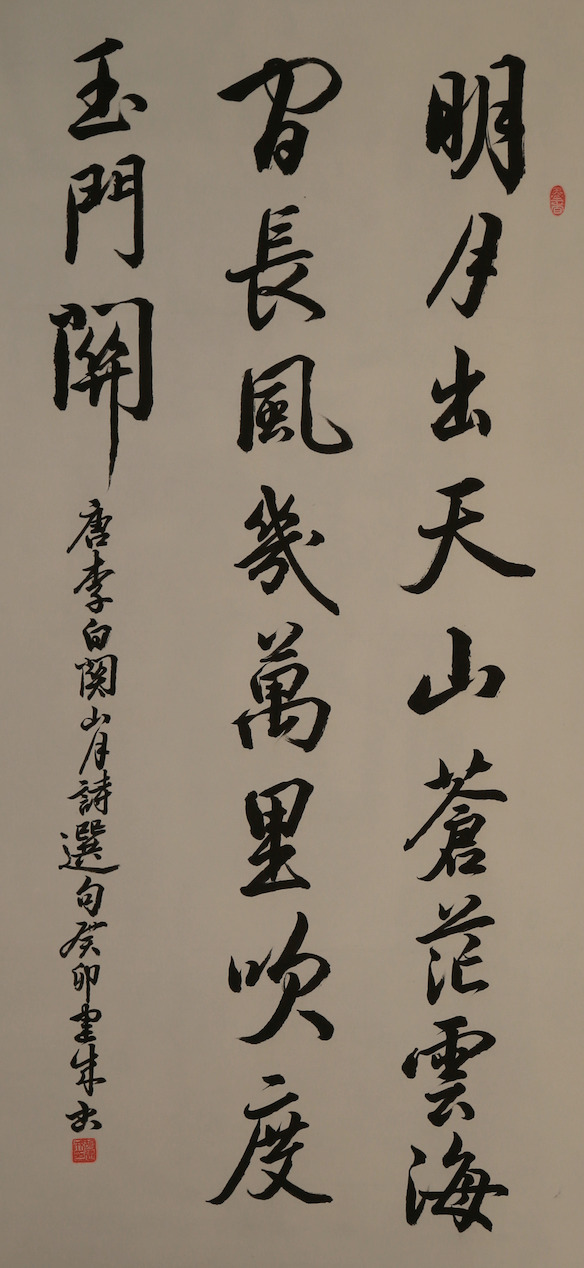 明月出天山蒼茫雲海
間長風幾萬里吹度
玉門關
唐李白関山月詩選句癸卯建成书